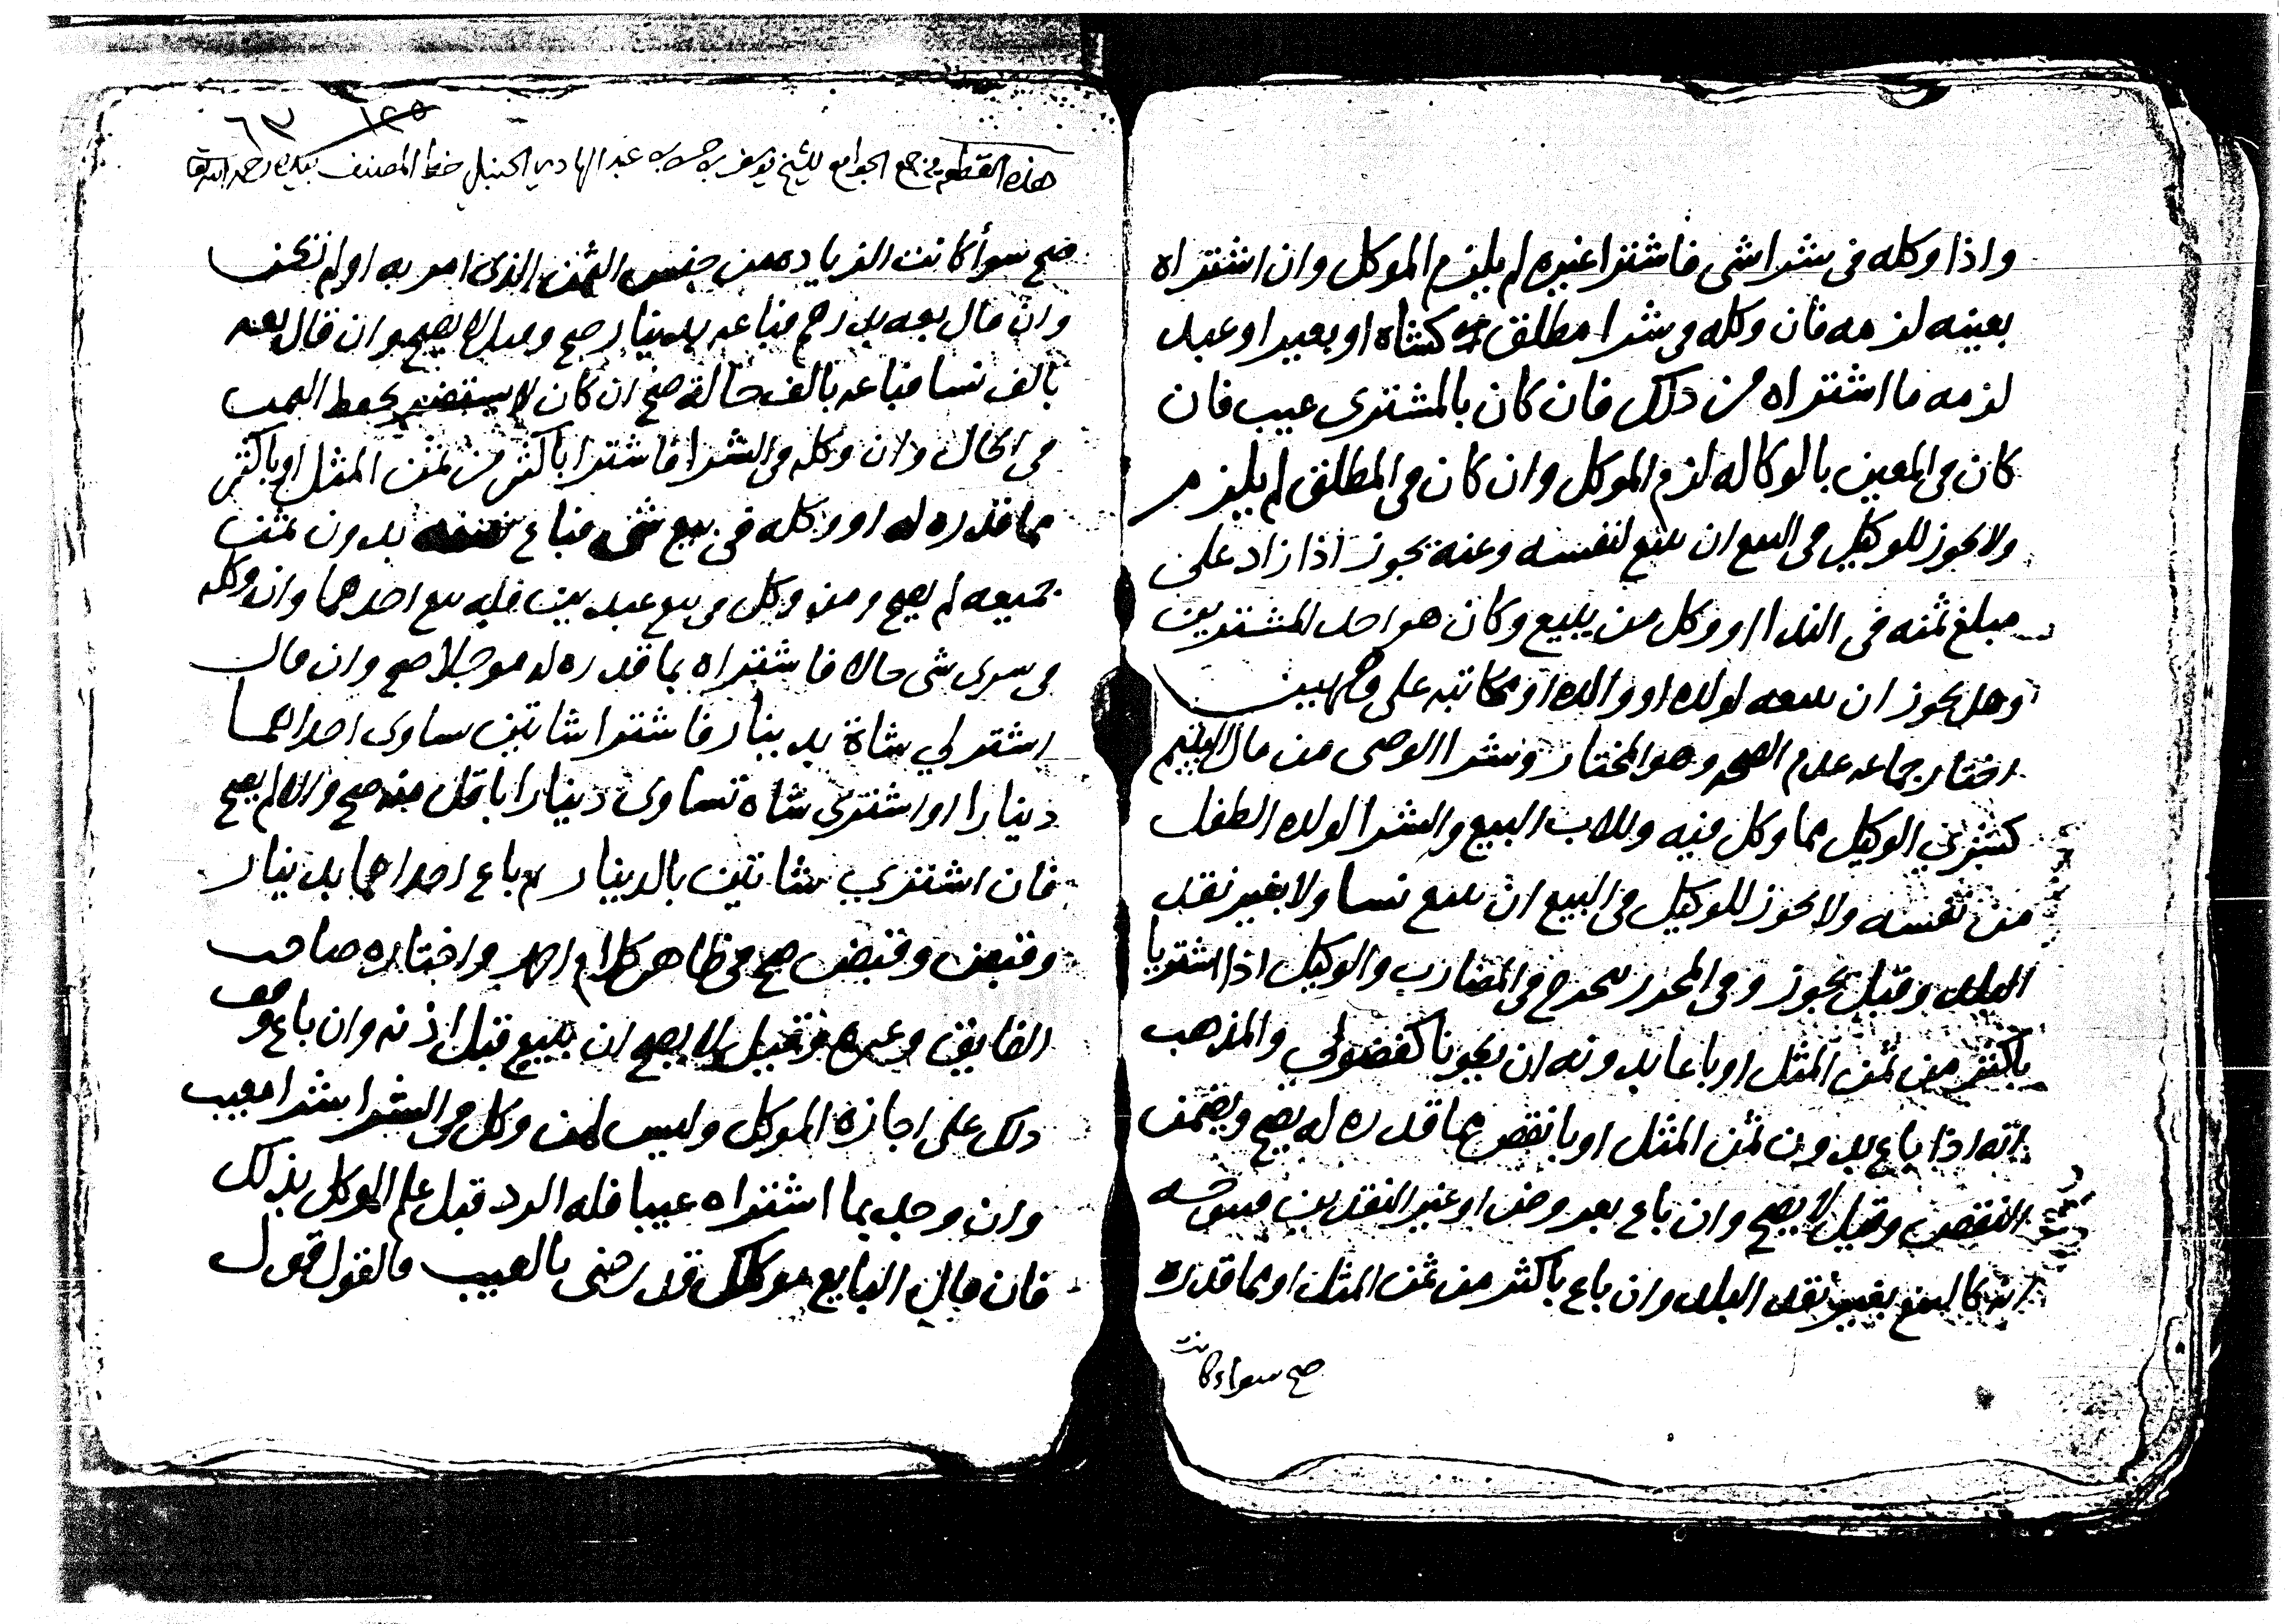 واذا وكله فى شرا شى فاشترا غيره لم يلزم الموكل وان اشتراه
بعينه لزمه فان وكله فى شرا مطلق كشاه او بعير او عبد
لزمه ما اشتراه من ذلك فان كان بالمشترى عيب فان
كان فى المعين بالوكاله لزم الموكل وان كان فى المطلق لم يلزم
ولا يجوز للوكيل فى البيع ان يبيع لنفسه وعنه يجوز اذا زاد على
مبلغ ثمنه فى الندا او وكل من يبيع وكان هو احد المشتريين
وهل يجوز ان يبيعه لولده او والده او مكاتبه على وجهين
اختار جماعه عدم الصحه وهو المختار وشرا الوصى من مال اليتيم
كشرى الوكيل مما وكل فيه وللاب البيع والشرا لولده الطفل
من نفسه ولا يجوز للوكيل فى البيع ان يبيع نسا ولا بغير نقد
البلد وقيل يجوز وفى المحرر يتخرج فى المضارب والوكيل اذا اشتريا
باكثر من ثمن المثل او باعا بدونه ان يكونا كفضولي والمذهب
انه اذا باع بدون ثمن المثل او بانقص مما قدره له يصح ويضمن
النقص وقيل لا يصح وان باع بعروض او غير النقدين
انه كالبيع بغير نقد البلد وان باع باكثر من ثمن المثل او مما قدره
صح سواء كانت
٦٣ ١٢٥
هذه القطعه من جمع الجوامع للشيخ يوسف بن حسن بن عبد الهادي الحنبلي خط المصنف بيده رحمه الله تعا
صح سوأ كانت الزياده من جنس الثمن الذى امر به او لم تكن
وان قال بعه بدرهم فباعه بدينار صح وقيل لا يصح وان قال بعه
بالف نسا فباعه بالف حالة صح ان كان لا يستضر بحفظ الثمن
فى الحال وان وكله فى الشرا فاشترا باكثر من ثمن المثل او باكثر
مما قدره له او وكله فى بيع شى فباع نصفه بدون ثمن
جميعه لم يصح ومن وكل فى بيع عبدين فله بيع احدهما وان وكله
فى شرى شى حالا فاشتراه بما قدره له موجلا صح وان قال
اشتر لي شاة بدينار فاشترا شاتين تساوى احداهما
دينارا او اشترى شاه تساوى دينارا باقل منه صح والا لم يصح
فان اشتري شاتين بالدينار ثم باع احداهما بدينار
وقبض وقبض صح فى ظاهر كلام احمد واختاره صاحب
الفايق وغيره وقيل لا يصح ان يبيع قبل اذنه وان باع وقف
ذلك على اجازه الموكل وليس لمن وكل فى الشرا بشرا معيب
وان وجد بما اشتراه عيبا فله الرد قبل علم الموكل بذلك
فان قال البايع موكلك قد رضى بالعيب فالقول قول